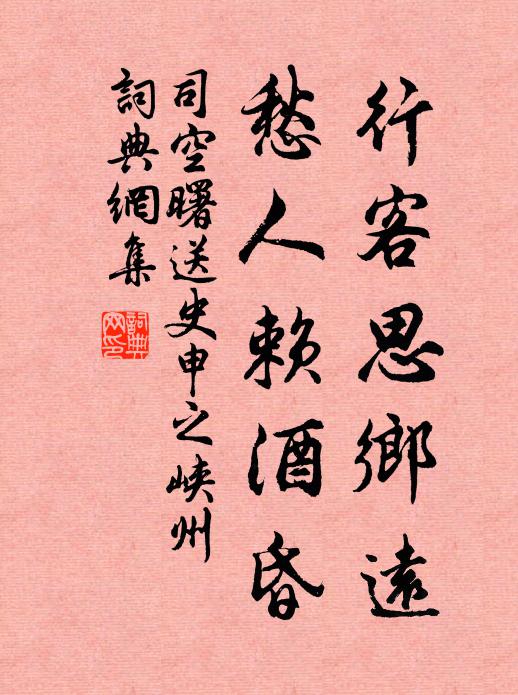 行客思鄉遠
愁人賴酒昏
司空曙送史申之峽州
詞典網集
詞典
网印